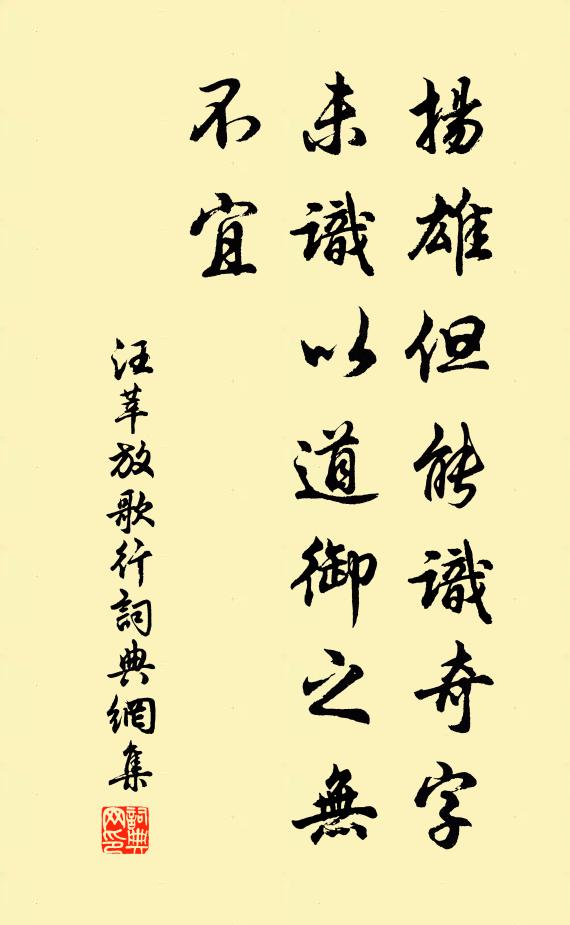 揚雄但能識奇字
未識以道御之無
不宜
汪莘放歌行詞典網集
詞典網印